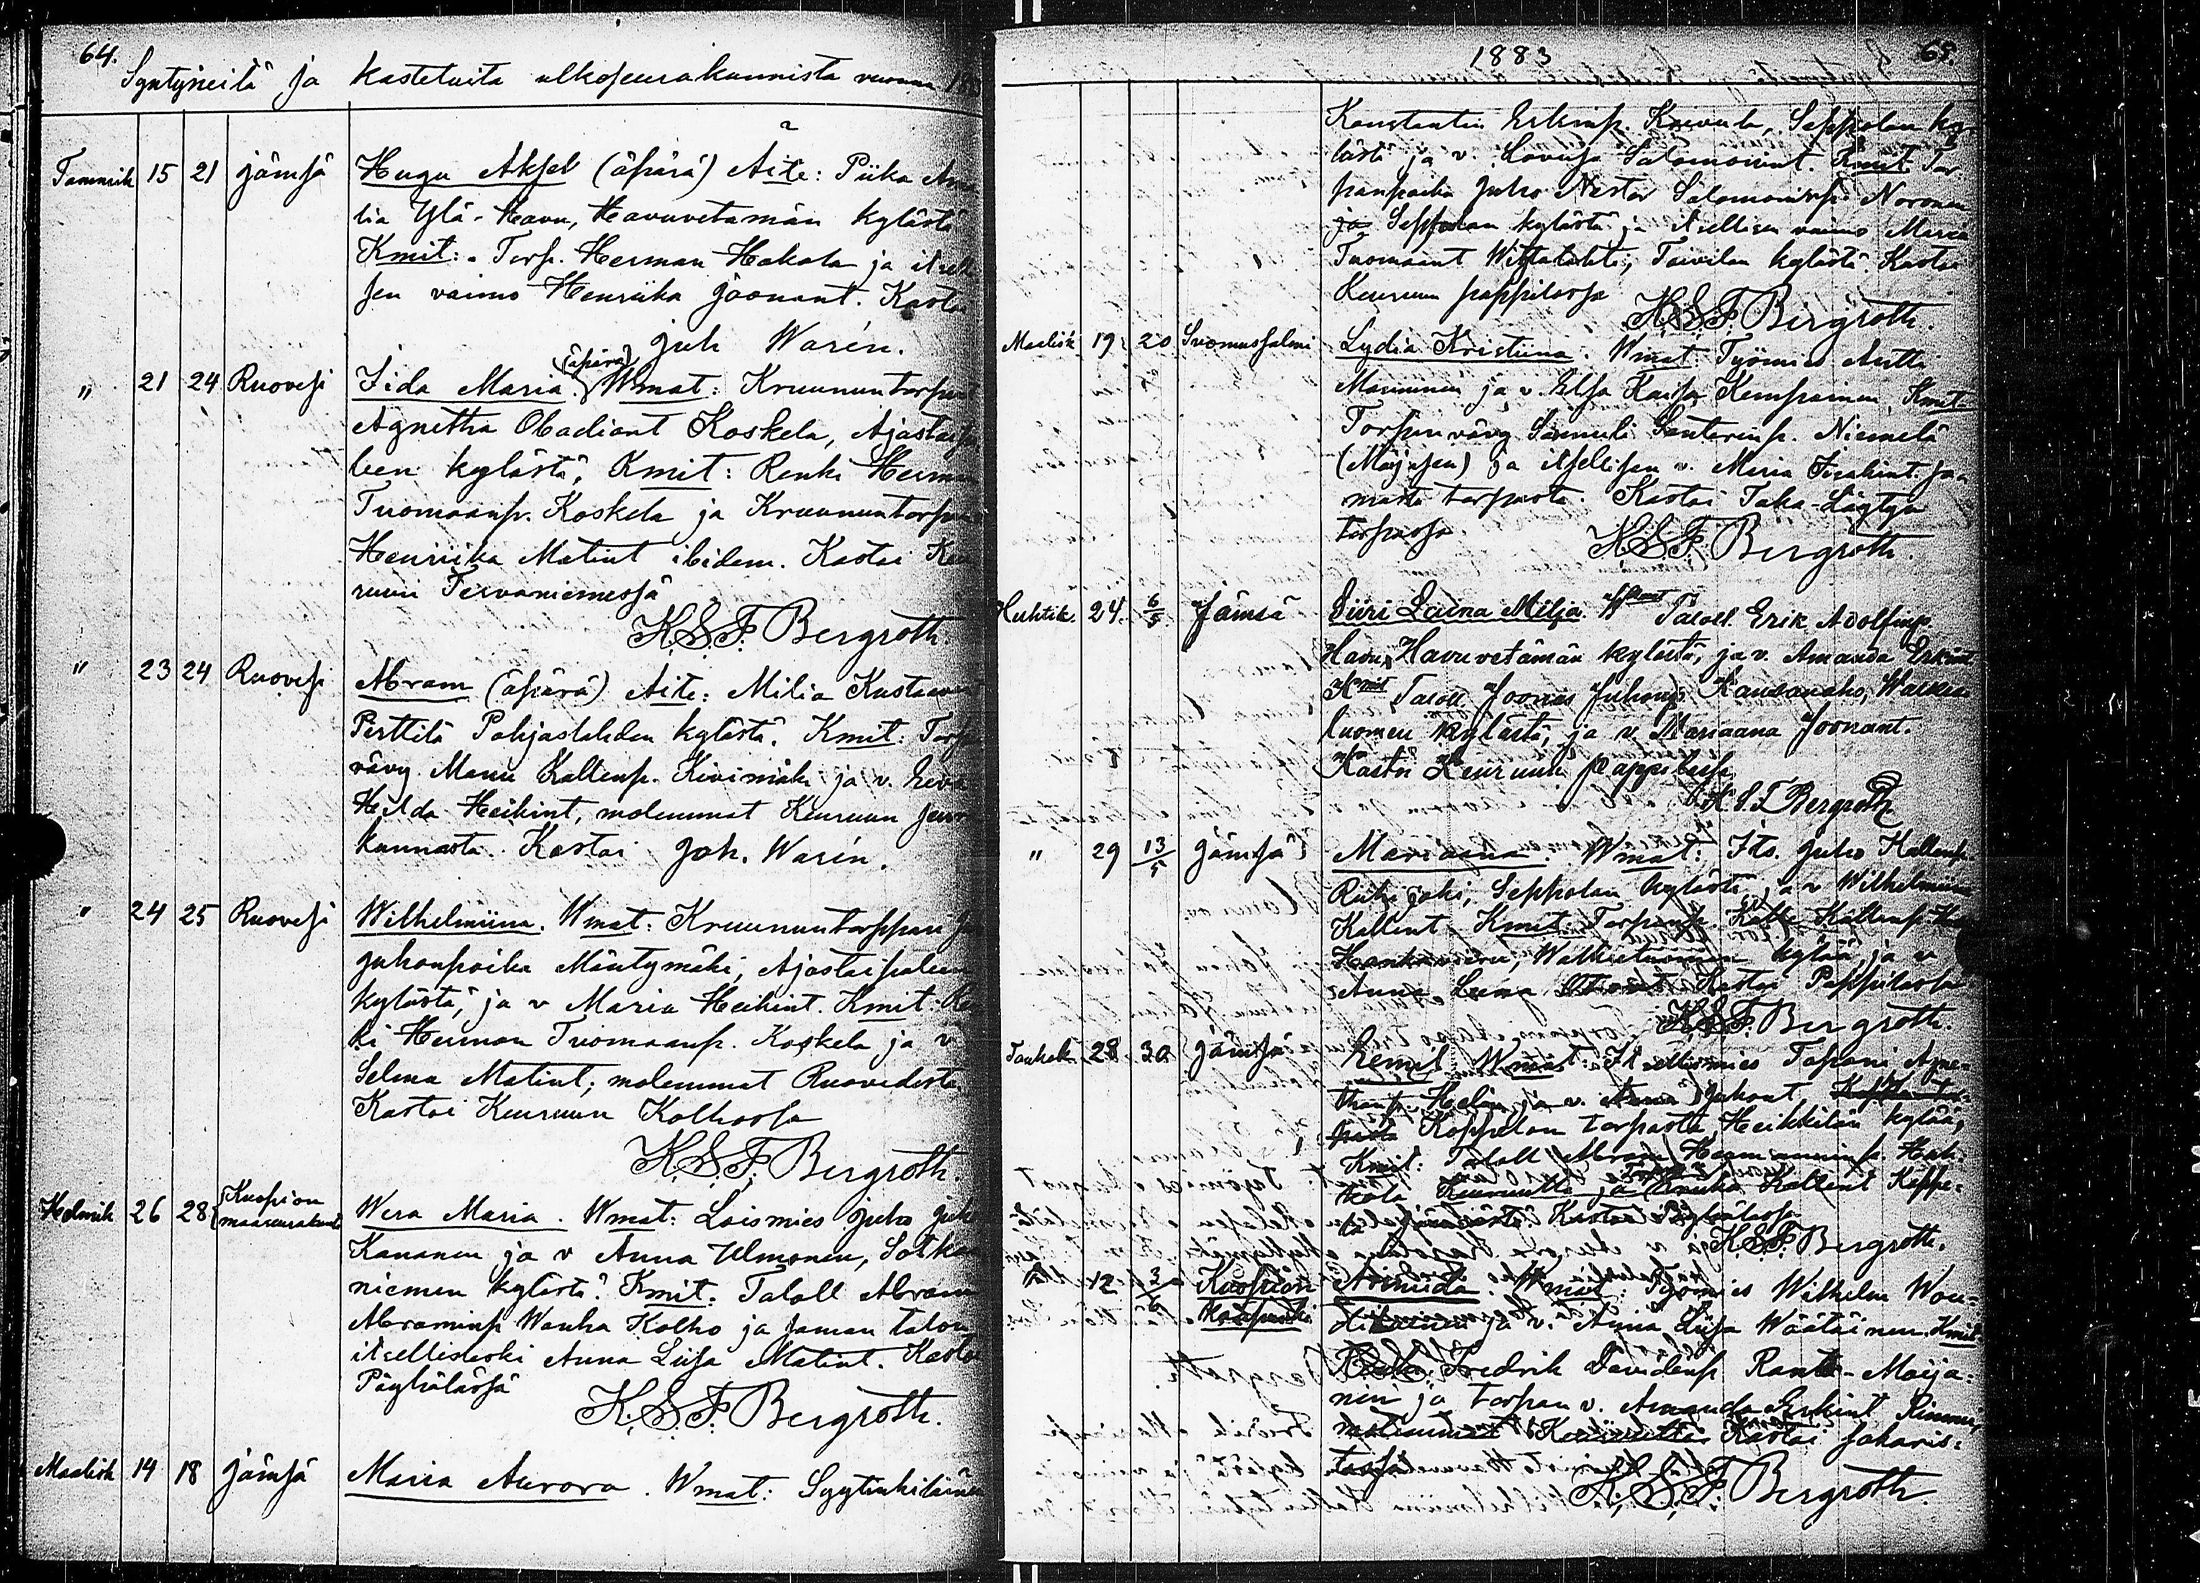 64.
Syntyneitä ja kastetuita ulkoseurakunnista vuonna
Tammik 15 21 Jämsä Hugo Aksel (äpärä) Äite: Piika Ama
lia Ylä-Havu, Havuvetämän kylästä
Kmit: Torp. Herman Hakola ja itsel
sen vaimo Henriika Joonant. Kastoi
Joh Warén.
" 21 24 Ruovesi Iida Maria. (äpärä) Wmat: Kruununtorpari
Agnetha Obadiant Koskela, Ajastaipa
leen kylästä, Kmit: Renki Herman
Tuomaanp. Koskela ja Kruununtorpari
Henriika Matint ibidem. Kastoi Keu
ruun Tervaniemessä
K.S.F. Bergroth
" 23 24 Ruovesi Abram (äpärä) Äite: Milia Kustaavint
Perttilä Pohjaslahden kylästä. Kmit: Torp
vävy Manu Kallenp. Kivimäki ja v. Eeva
Hilda Heikint, molemmat Keuruun seura
kunnasta. Kastoi Joh. Warén.
" 24 25 Ruovesi Wilhelmiina. Wmat: Kruununtorppari
Juhonpoika Mäntymäki, Ajastaipaleen
kylästä, ja v Maria Heikint. Kmit: Ren
ki Herman Tuomaanp. Koskela ja v
Selma Matint; molemmat Ruovedestä
Kastoi Keuruun Kolhossa
K.S.F. Bergroth.
Helmik 26 28 Kuopion maaseurakunt Wera Maria. Wmat: Loismies Juho Juh
Kananen ja v Anna Ulmonen, Sotka
niemen kylästä. Kmit: Taloll Abram
Abraminp Wanha Kolho ja saman talon
itsellisleski Anna Liisa Matint. Kastoi
Pöyhölässä
K.S.F. Bergroth.
Maalisk 14 18 Jämsä Maria Aurora. Wmat: Syytinkiläinen
1883 65.
Konstantin Erkinp. Koivula, Seppolan ky-
lästä ja v. Lovisa Salomonint. Kmit. Tor-
panpoika Juho Nestor Salomoninp. Noronen
ja Seppolan kylästä ja itsellisen vaimo Maria
Tuomaant, Toivilan kylästä. Kastoi
Keuruun pappilassa
K.S.F. Bergroth.
Maalisk 19 20 Suomussalmi Lydia Kristiina. Wmat: Työmies Antti
Manninen ja v. Elsa Kaisa Kemppainen, Kmit
Torpan vävy Samuli Santerinp. Niemelä
ja itsellisen v. Maria Iisakint. sa-
masta torpasta. Kastoi Taka-Löytyn
torpassa.
K.S.F. Bergroth.
Huhtik. 24. 6/5 Jämsä Siiri Laina Milja. Wmat Taloll. Erik Adolfinp.
Havu, Havuvetämän kylästä, ja v. Amanda Erkint
Kmit Taloll Joonas Juhonp. Kansanaho, Walkea
luomen kylästä, ja v. Mariaana Joonant.
Kastoi Keuruun pappilassa
K S F Bergroth
" 29 13/5 Jämsä Mariaana. Wmat: Its. Juho Kallenp.
Riihijoki, Seppolan kylästä, ja v Wilhelmiina
Kallent. Kmit: Torpanp. Kalle Kallenp.
kylää ja v
Anna Leena Kastoi Pappilassa
K.S.F. Bergroth.
Toukok 28 30 Jämsä Eemil Wmat: Itsellismies Tapani Agne-
thanp. Helin ja v. Juhont,
Koppelon torpasta Heikkilän kylää,
Kmit: Taloll Abram Hermanninp. Hak-
kola Keuruulta ja Kallent Koppe-
la Kastoi Pöyhölässä
K.S.F. Bergroth.
12 3/6 Kuopion Kaupunki Armida. Wmat: Työmies Wilhelm Wou-
tilainen ja v. Anna Liisa Wäätäinen. Kmit.
Fredrik Davidinp Ranta-Maija-
nen ja torpan v. Amanda Erkint Rimmi,
molemmat Keuruulta Kastoi Jokaris-
tassa
K.S.F. Bergroth.